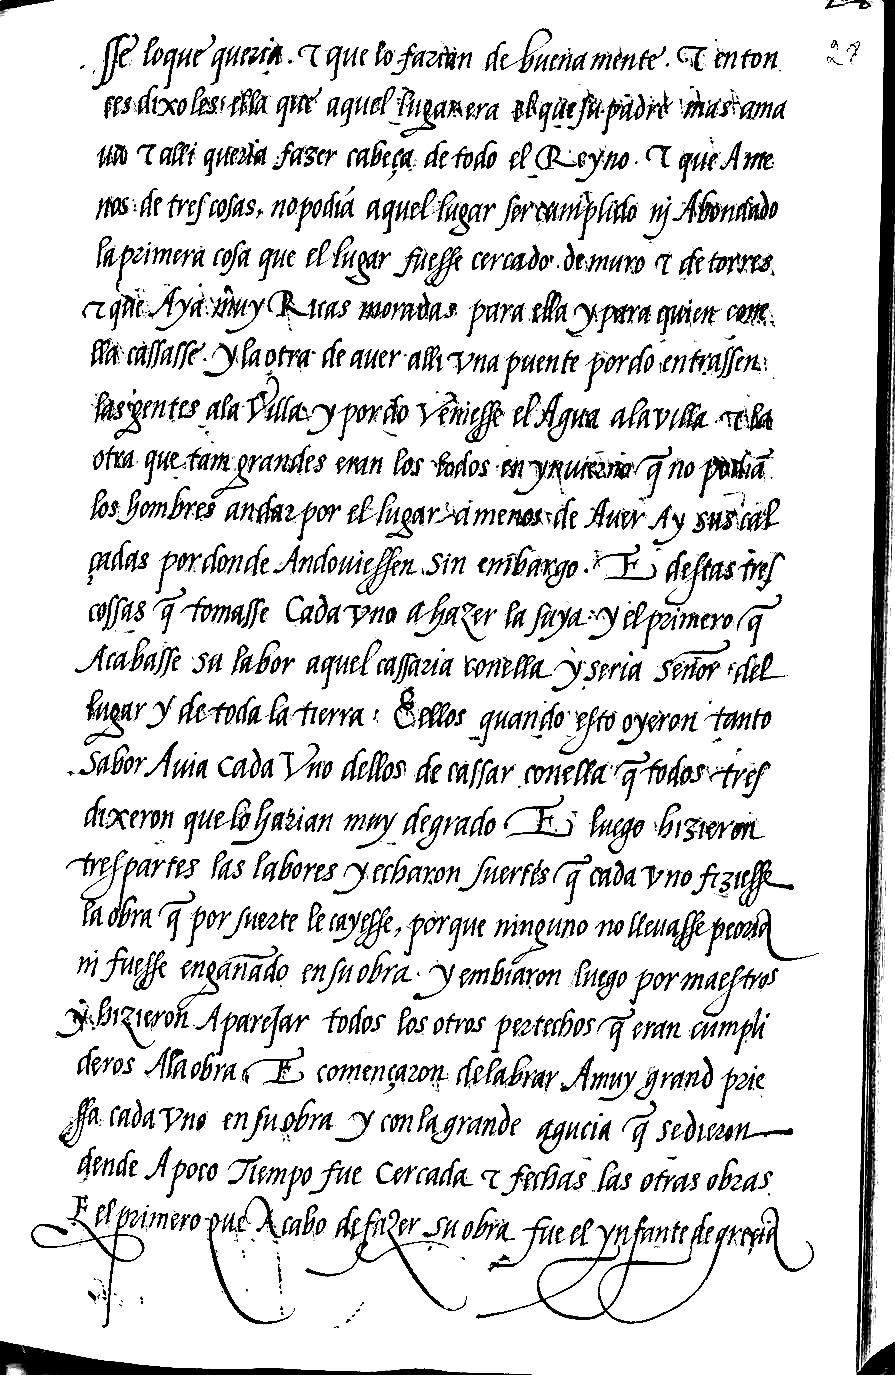 28
sse loque queria. τ que lo farian de buena mente. τ enton
ces dixo les ella que aquel lugar era el que su padre mas ama
ua τ alli queria fazer cabeça de todo el Reyno. τ que Ame
nos de tres cosas, no podiā aquel lugar ser cumplido nj Abondado
la primera cosa que el lugar fuesse cercado de muro τ de torres.
τ que Aya muy Ricas moradas para ella y para quien cone
lla cassasse. y la otra de auer alli vna puente por do entrassen
las gentes ala Villa y por do veniesse el Agua a la villa τ la
otra que tam grandes eran los lodos en ynuierno q̄ no podiā
los hombres andar por el lugar a menos de Auer Ay sus cal
çadas por donde Andouiessen sin embargo. E destas tres
cossas q̄ tomasse Cada vno a hazer la suya y el primero q̄
Acabasse su labor aquel cassaria conella y seria señor del
lugar y de toda la tierra: Eellos quando esto oyeron tanto
sabor Auia cada Vno dellos de cassar conella q̄ todos tres
dixeron que lo harian muy de grado. E luego hizieron
tres partes las labores y echaron suertes q̄ cada vno fiziesse
la obra q̄ por suerte le cayesse, porque ninguno no lleuasse peoria
ni fuesse engañado en su obra. y embiaron luego por maestros
y hizieron Aparejar todos los otros pertechos q̄ eran cumpli
deros Ala obra. E començaron de labrar A muy grand prie
ssa cada vno en su obra y con la grande agucia q̄ se dieron
dende A poco Tiempo fue Cercada τ fechas las otras obras
E el primero que Acabo de fazer su obra fue el ynfante de grecia